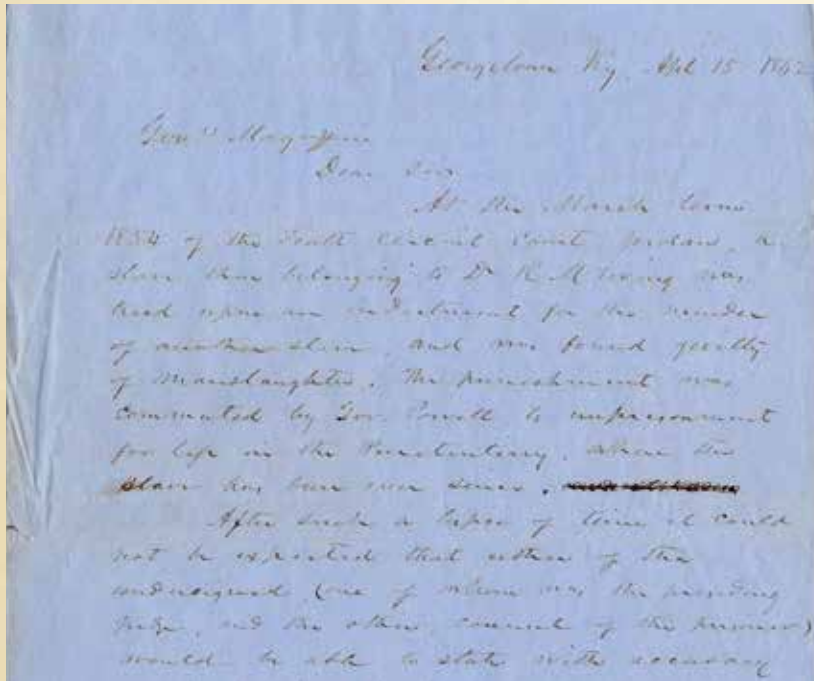 Georgetown Ky. Apl 15 1862
Govr Magoffin
Dear Sir
At the March term
1854 of the Scott Circuit Court Jordan, a
slave then belonging to Dr R. M. Ewing was
tried upon an indictment for the murder
of another slave and was found guilty
of Manslaughter. The punishment was
commuted by Gov. Powell to imprisonment
for life in the Penitentiary, where the
slave has been ever since.
After such a lapse of time it could
not be expected that either of the
undersigned (one of whom was the presiding
judge, and the other, counsel of the prisoner)
would be able to state with accuracy